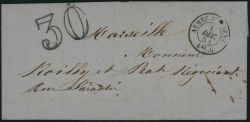 30
Marseille
Monsieur
Noilly et Prat, Négociant
rue Paradis